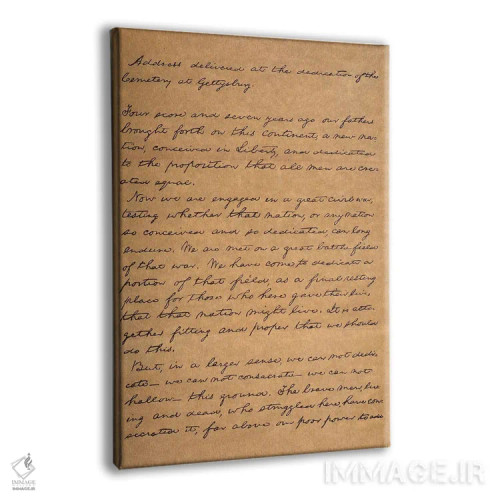 Address delivered at the dedication of the
Cemetery at Gettysburg.
Four score and seven years ago our fathers
brought forth on this continent, a new na-
tion, conceived in Liberty, and dedicated
to the proposition that all men are cre-
ated equal.
Now we are engaged in a great civil war,
testing whether that nation, or any nation
so conceived and so dedicated, can long
endure. We are met on a great battle-field
of that war. We have come to dedicate a
portion of that field, as a final resting
place for those who here gave their lives
that that nation might live. It is alto-
gether fitting and proper that we should
do this.
But, in a larger sense, we can not dedi-
cate— we can not consecrate— we can not
hallow— this ground. The brave men, liv-
ing and dead, who struggled here, have con-
secrated it, far above our poor power to add
IMMAGE
immageltd.ir
IMMAGE.IR